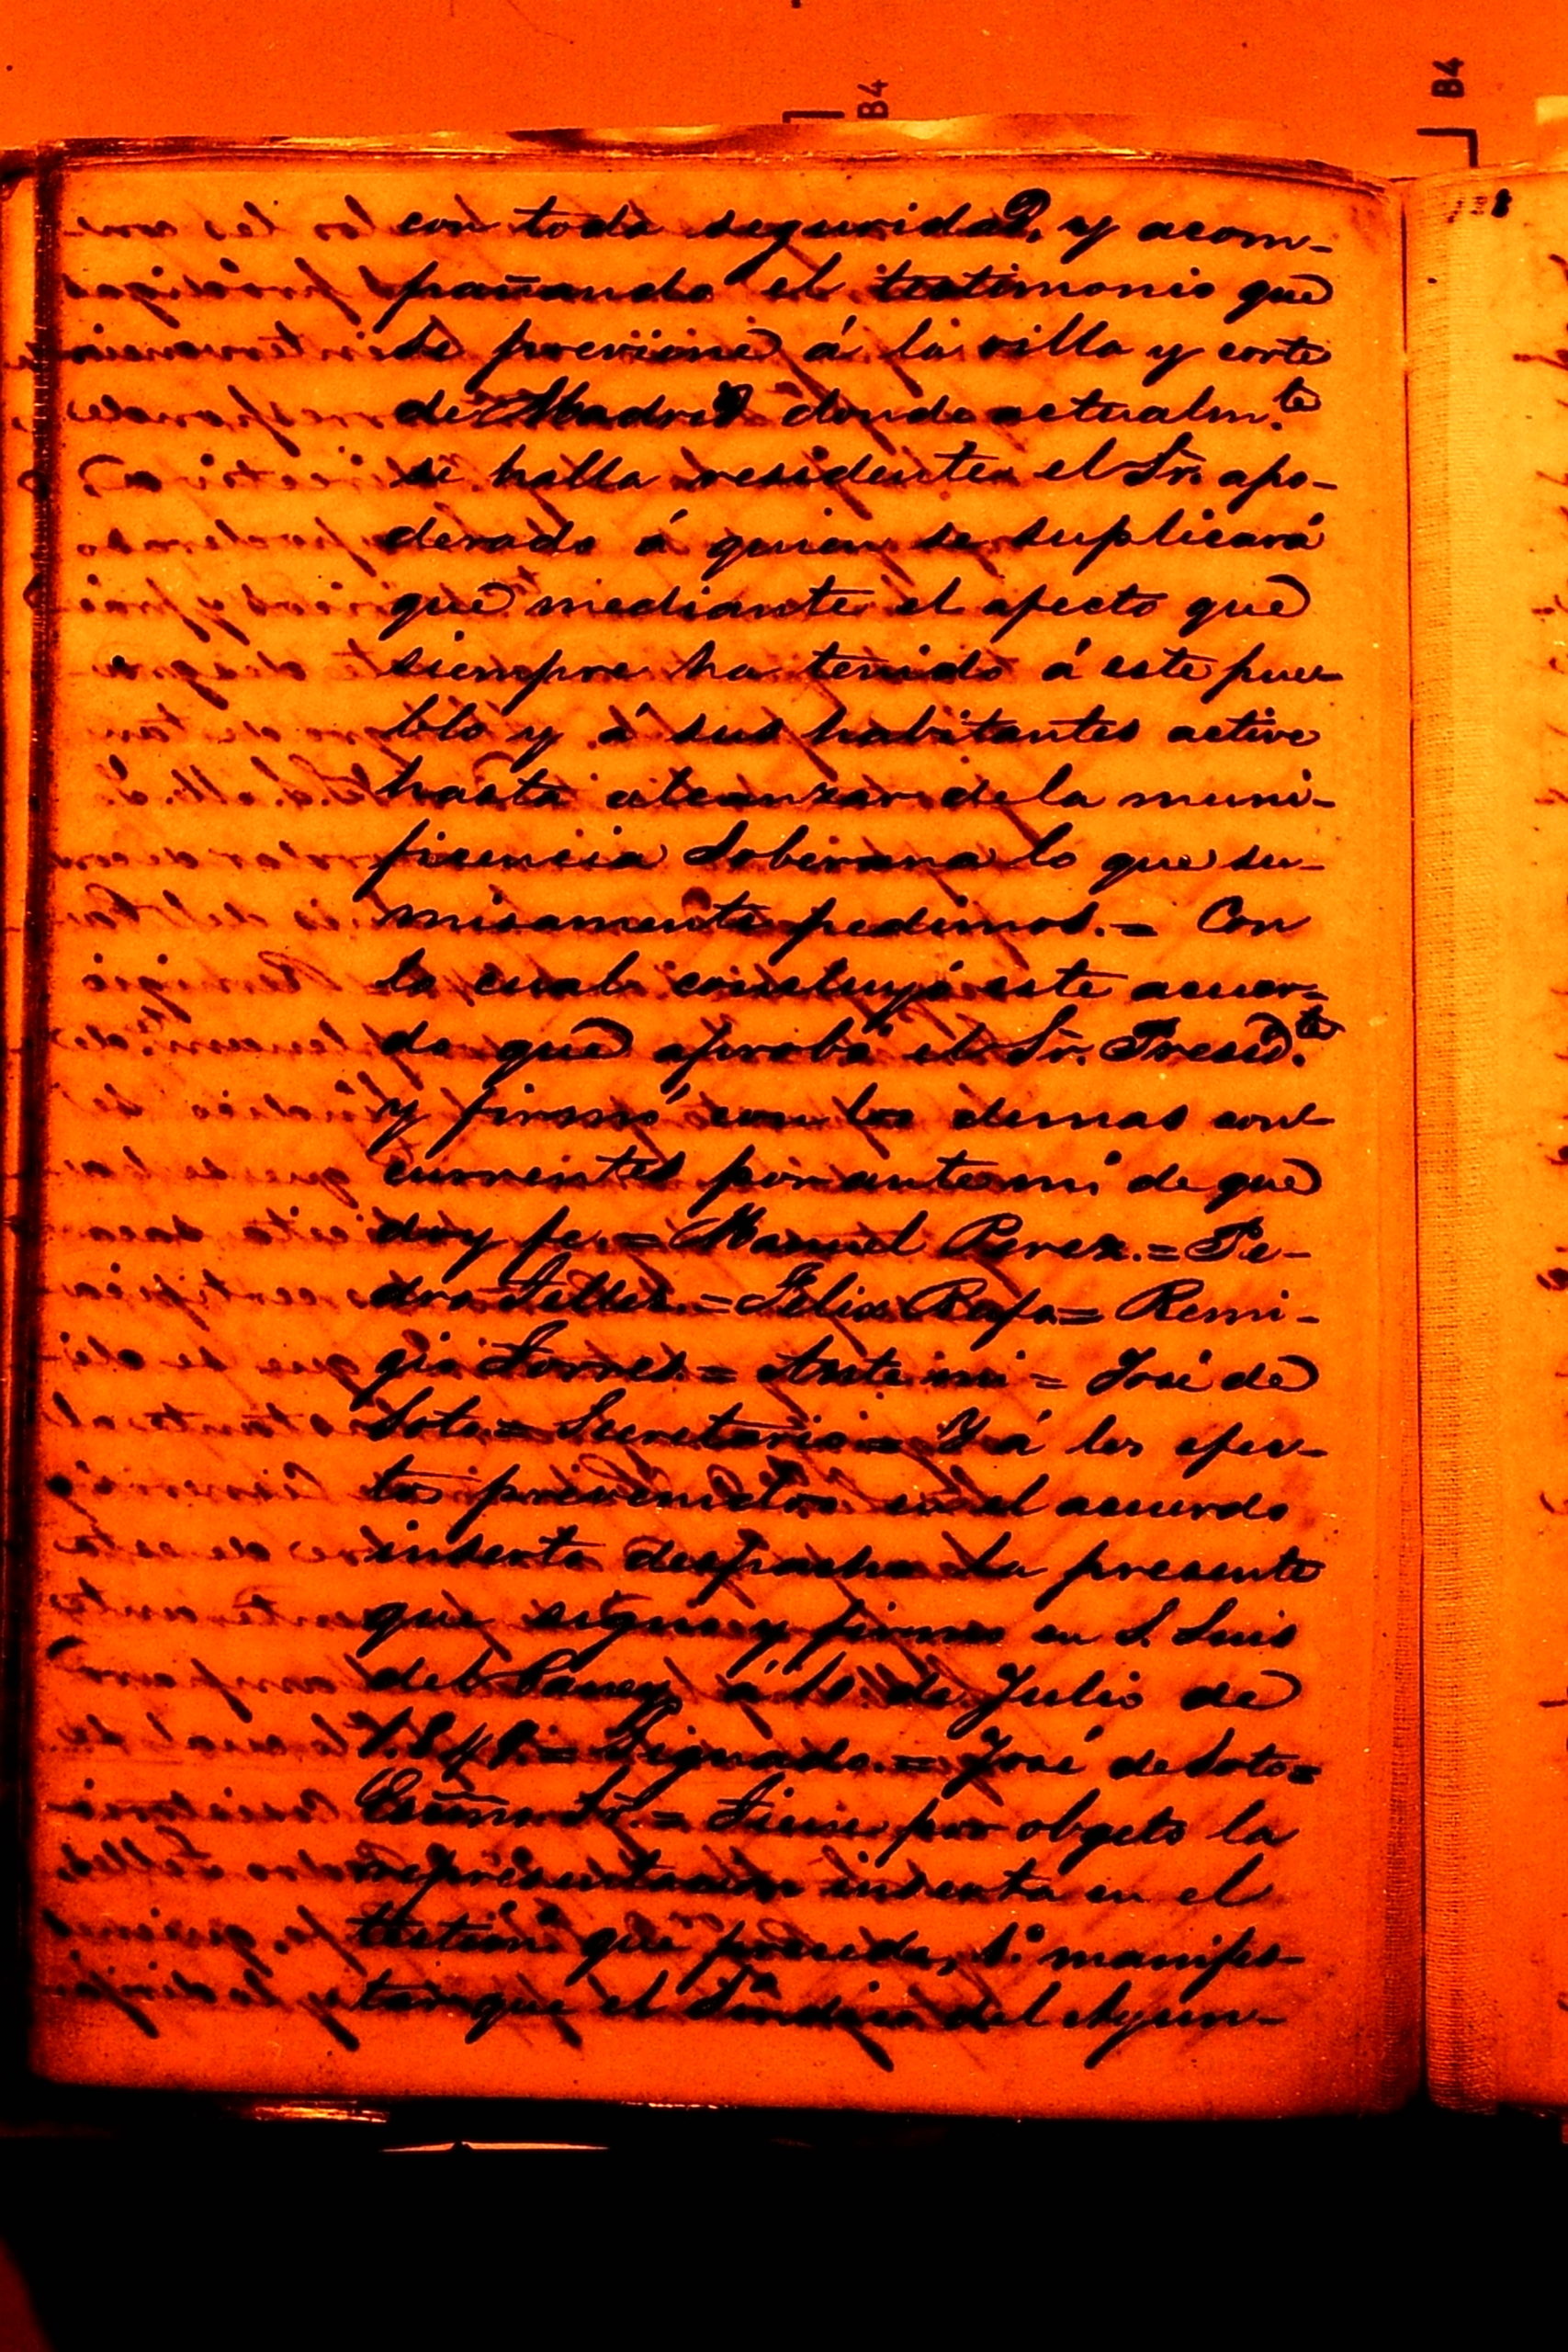 B4
B4
con toda seguridad, y acom-
pañando el testimonio que
se previene á la villa y corte
de Madrid donde actualm.te
se halla residente el Sr. apo-
derado á quien se suplicará
que mediante el afecto que
siempre ha tenido á este pue-
blo y á sus habitantes active
hasta alcanzar de la muni-
ficencia Soberana lo que su-
misamente pedimos.= Con
lo cual concluyó este acuer-
do que aprobó el Sr. Presid.te
y firmó con los demas con-
currentes por ante mi de que
doy fe.= Manuel Perez.= Pe-
dro Telles.= Felix Rafa= Remi-
gio Torres.= Ante mi= José de
Soto= Secretario= Y á los efec-
tos prevenidos en el acuerdo
inserto despacho la presente
que signo y firmo en S. Luis
del Caney á 10 de Julio de
Signado.= José de Soto=
Escmo Sr.= Tiene por objeto la
representacion inserta en el
testim que precede, 1.º manifes-
tar que el Síndico del Ayun-